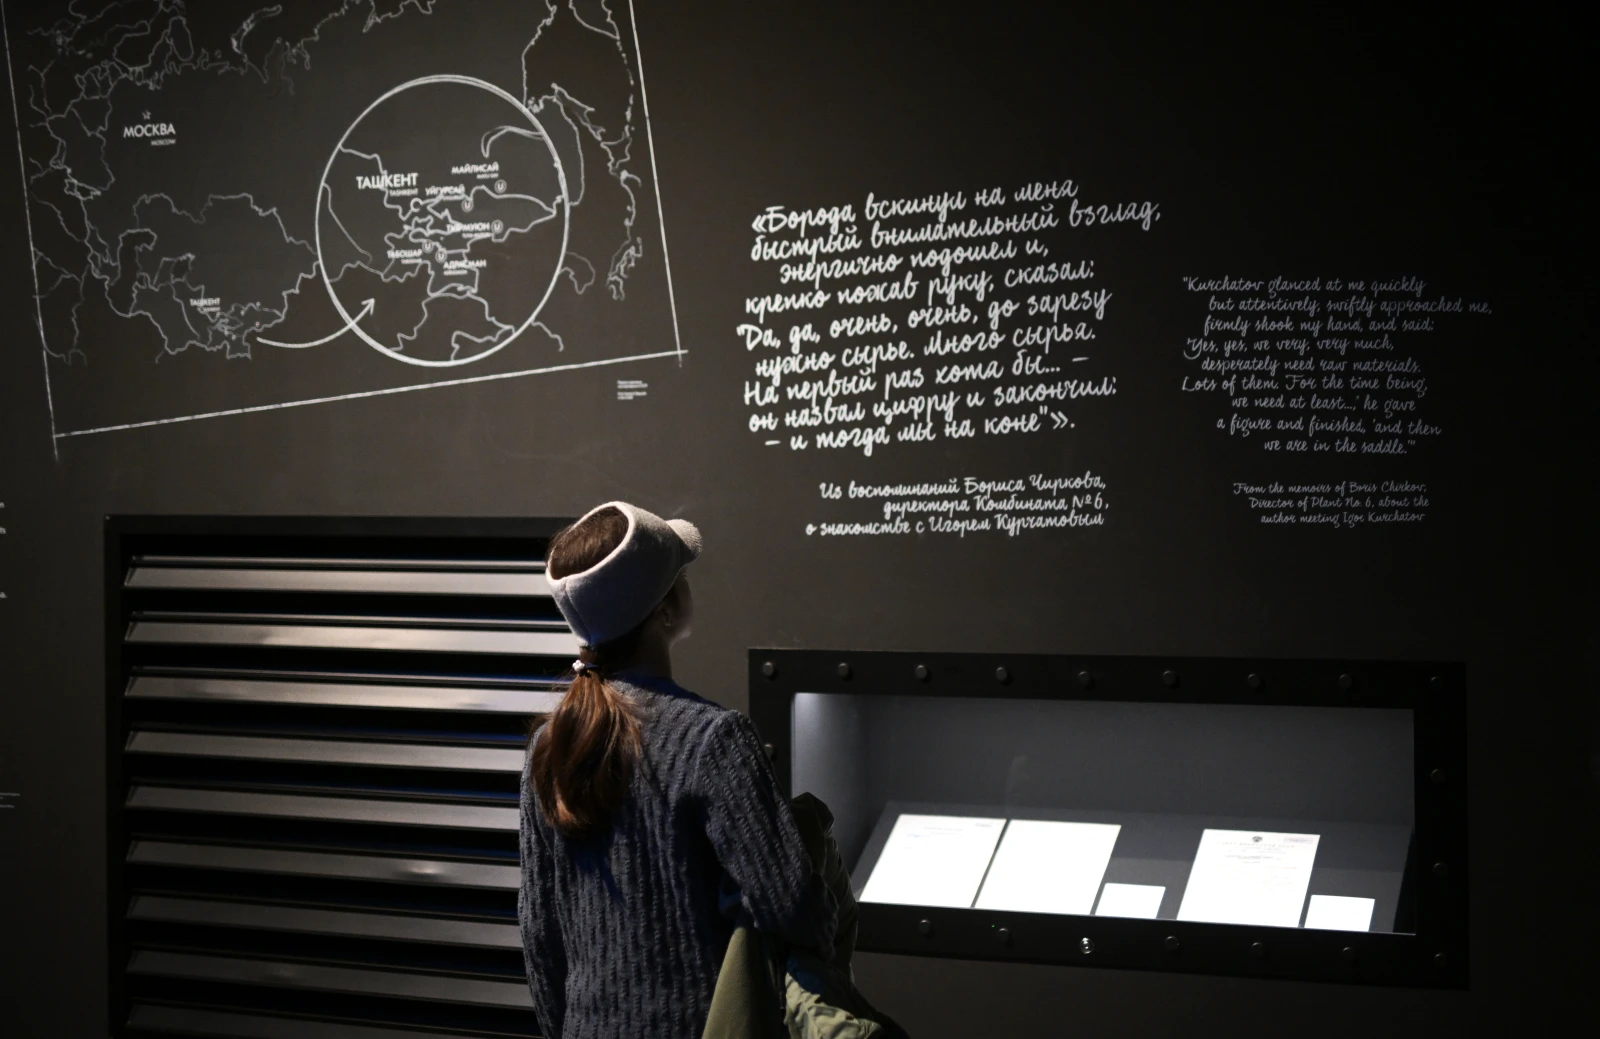 МОСКВА
MOSCOW
ТАШКЕНТ
TASHKENT
МАЙЛИСАЙ
УЙГУРСАЙ
ТЮЯМУЮН
ТАБОШАР
АДРАСМАН
ТАШКЕНТ
«Борода вскинул на меня
быстрый внимательный взгляд,
энергично подошел и,
крепко пожав руку, сказал:
"Да, да, очень, очень, до зарезу
нужно сырье. Много сырья.
На первый раз хотя бы... –
он назвал цифру и закончил:
– и тогда мы на коне"».
Из воспоминаний Бориса Чиркова,
директора Комбината №6,
о знакомстве с Игорем Курчатовым
"Kurchatov glanced at me quickly
but attentively, swiftly approached me,
firmly shook my hand, and said:
'Yes, yes, we very, very much,
desperately need raw materials.
Lots of them. For the time being,
we need at least...,' he gave
a figure and finished, 'and then
we are in the saddle.'"
From the memoirs of Boris Chirkov,
Director of Plant No. 6, about the
author meeting Igor Kurchatov